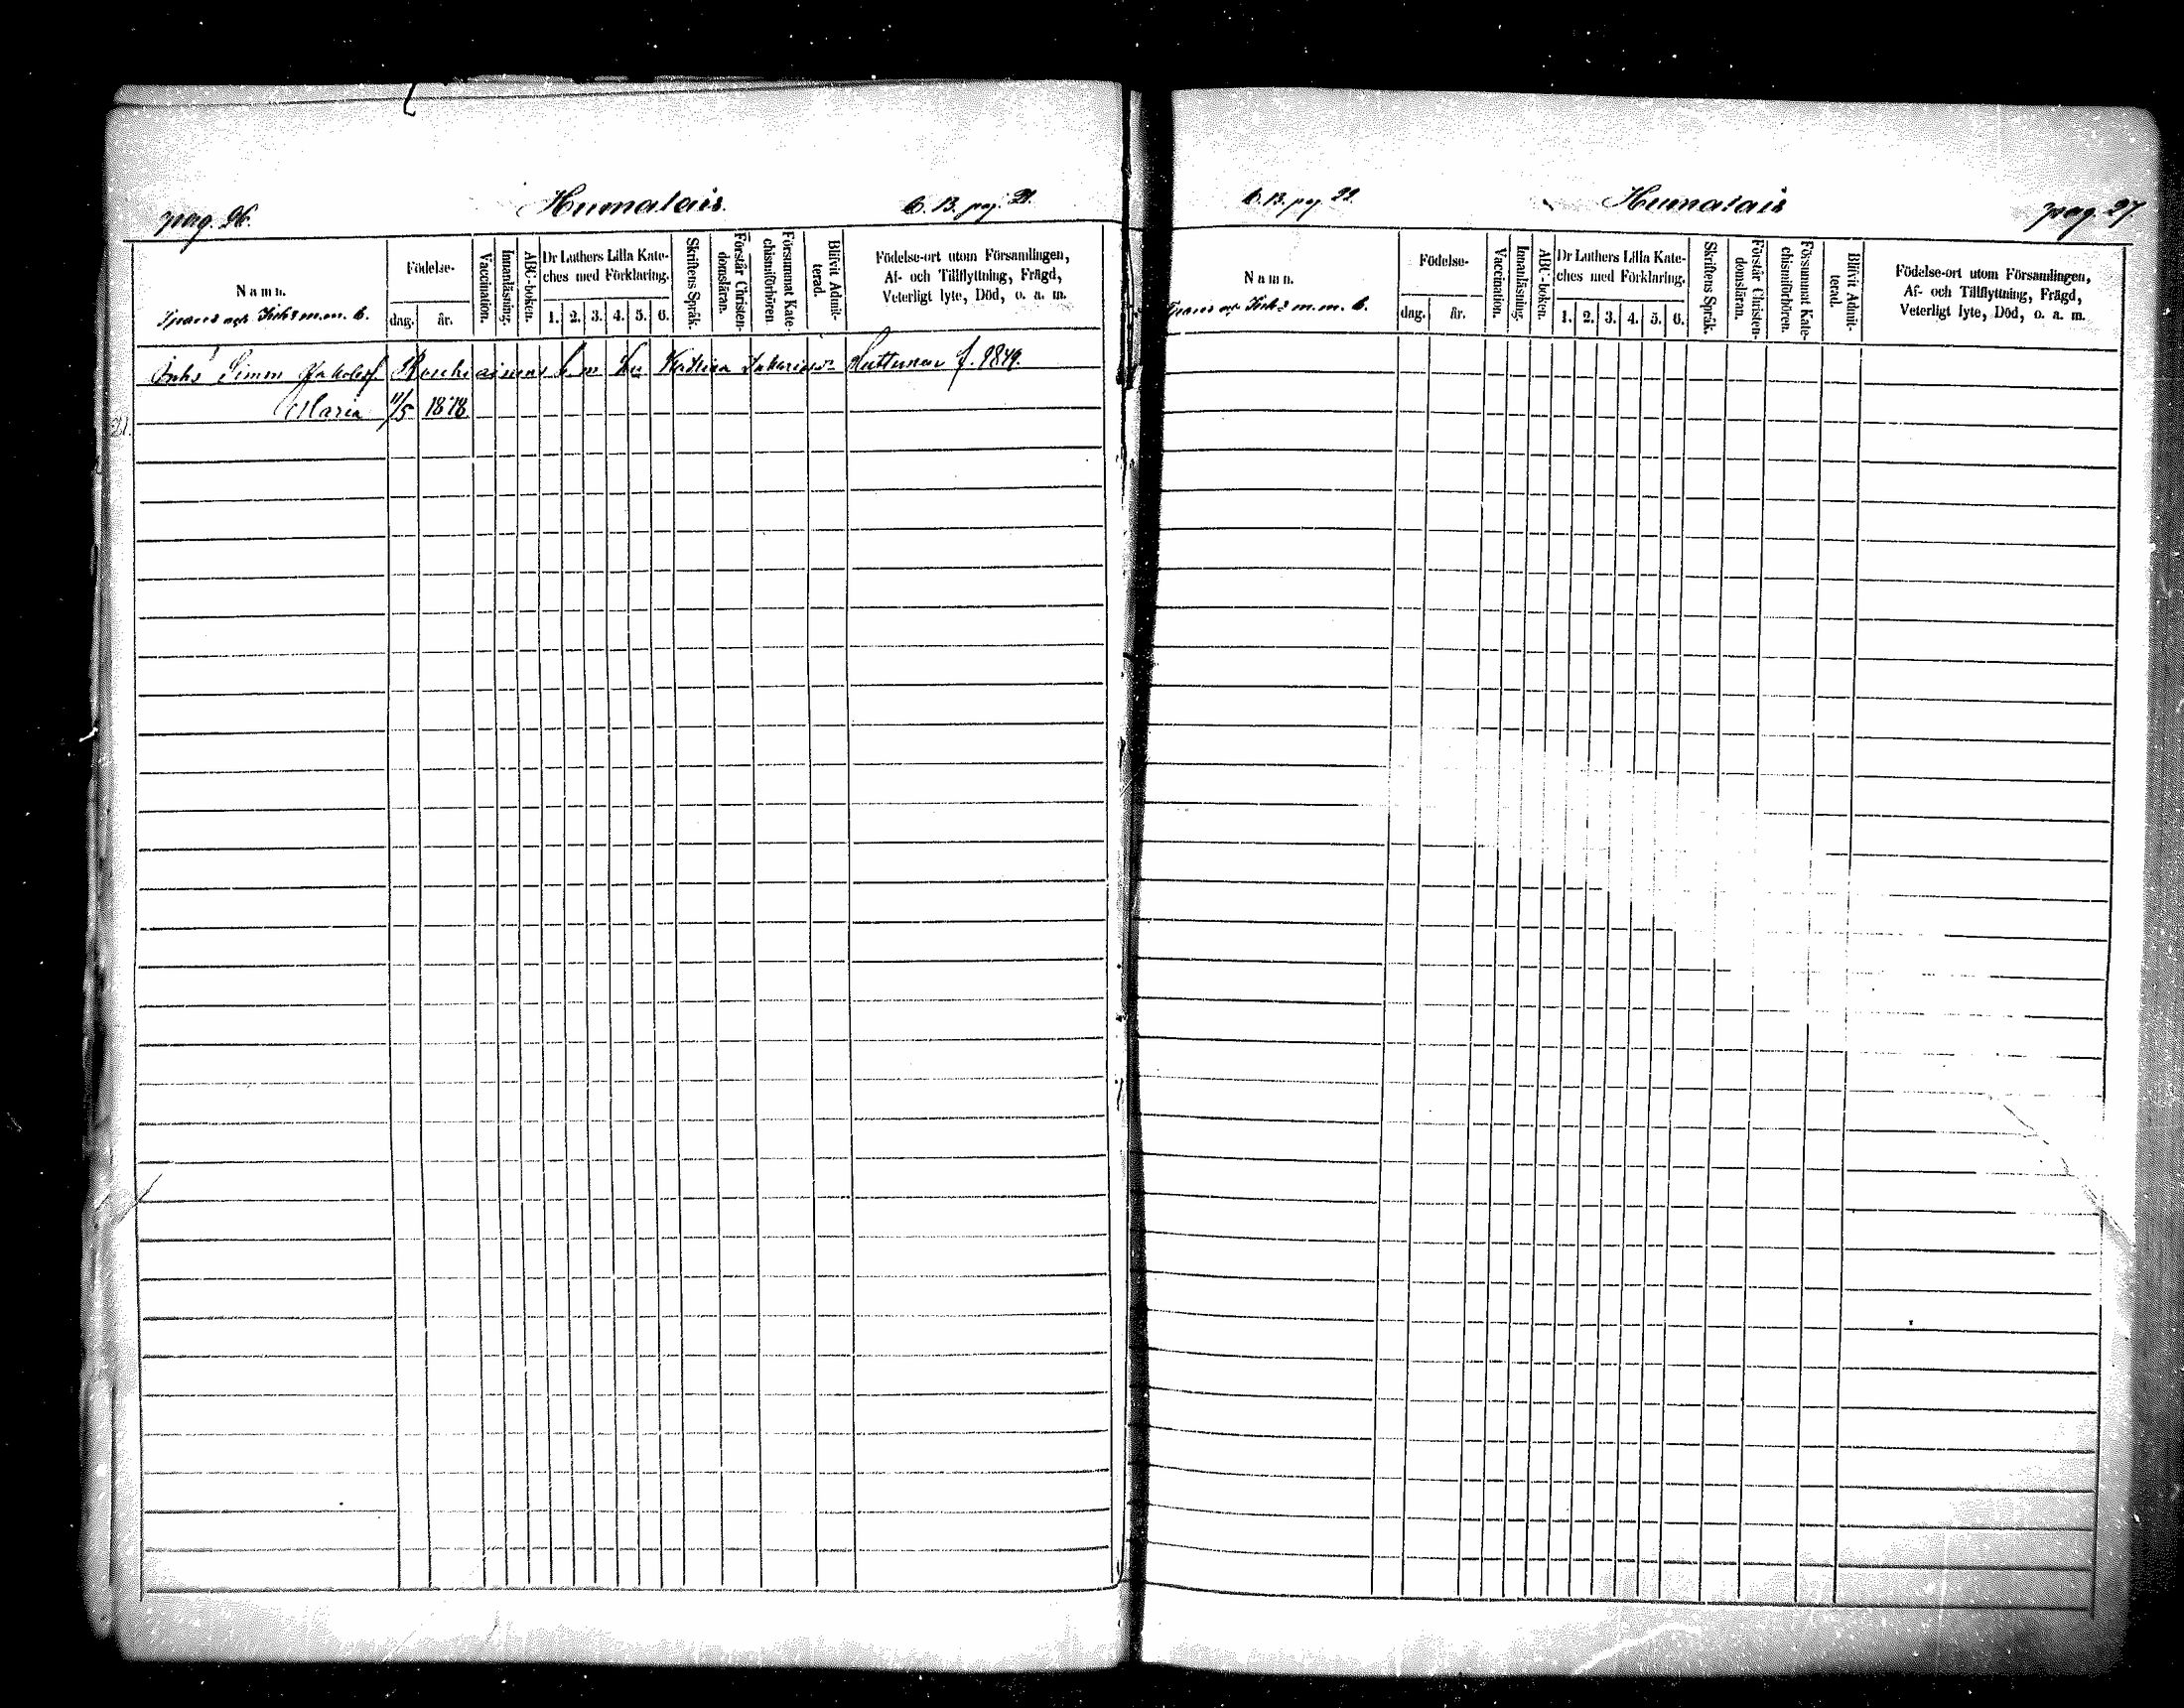 pag. 26.
Humalais.
C. B. pag 21.
Namn.
Födelse-
dag.
år.
Vaccination.
Innanläsning.
ABC-boken.
Dr Luthers Lilla Kate-
ches med Förklaring.
1. 2. 3. 4. 5. 6.
Skriftens Språk.
Förstår Christen-
domsläran.
Försummat Kate-
chismiförhören.
Blifvit Admit-
terad.
Födelse-ort utom Församlingen,
Af- och Tillflyttning, Frägd,
Veterligt lyte, Död, o. a. m.
Simon Jakobsf h. m. Katrina f. 1849.
Maria 11/5 1878
C. B. pag 22
Humalais
pag. 27.
Namn.
Födelse-
dag.
år.
Vaccination.
Innanläsning.
ABC-boken.
Dr Luthers Lilla Kate-
ches med Förklaring.
1. 2. 3. 4. 5. 6.
Skriftens Språk.
Förstår Christen-
domsläran.
Försummat Kate-
chismiförhören.
Blifvit Admit-
terad.
Födelse-ort utom Församlingen,
Af- och Tillflyttning, Frägd,
Veterligt lyte, Död, o. a. m.